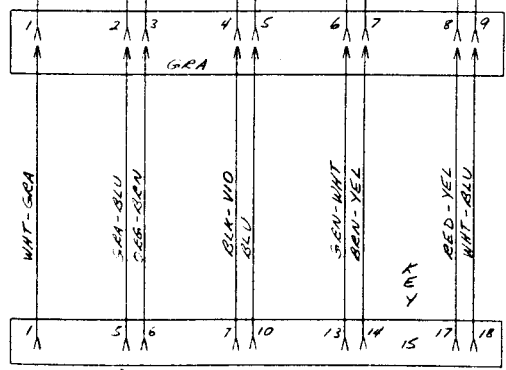 1 2 3 4 5 6 7 8 9
GRA
WHT-GRA
GRA-BLU
ORG-BRN
BLK-VIO
BLU
GRN-WHT
BRN-YEL
KEY
RED-YEL
WHT-BLU
1 5 6 7 10 13 14 15 17 18